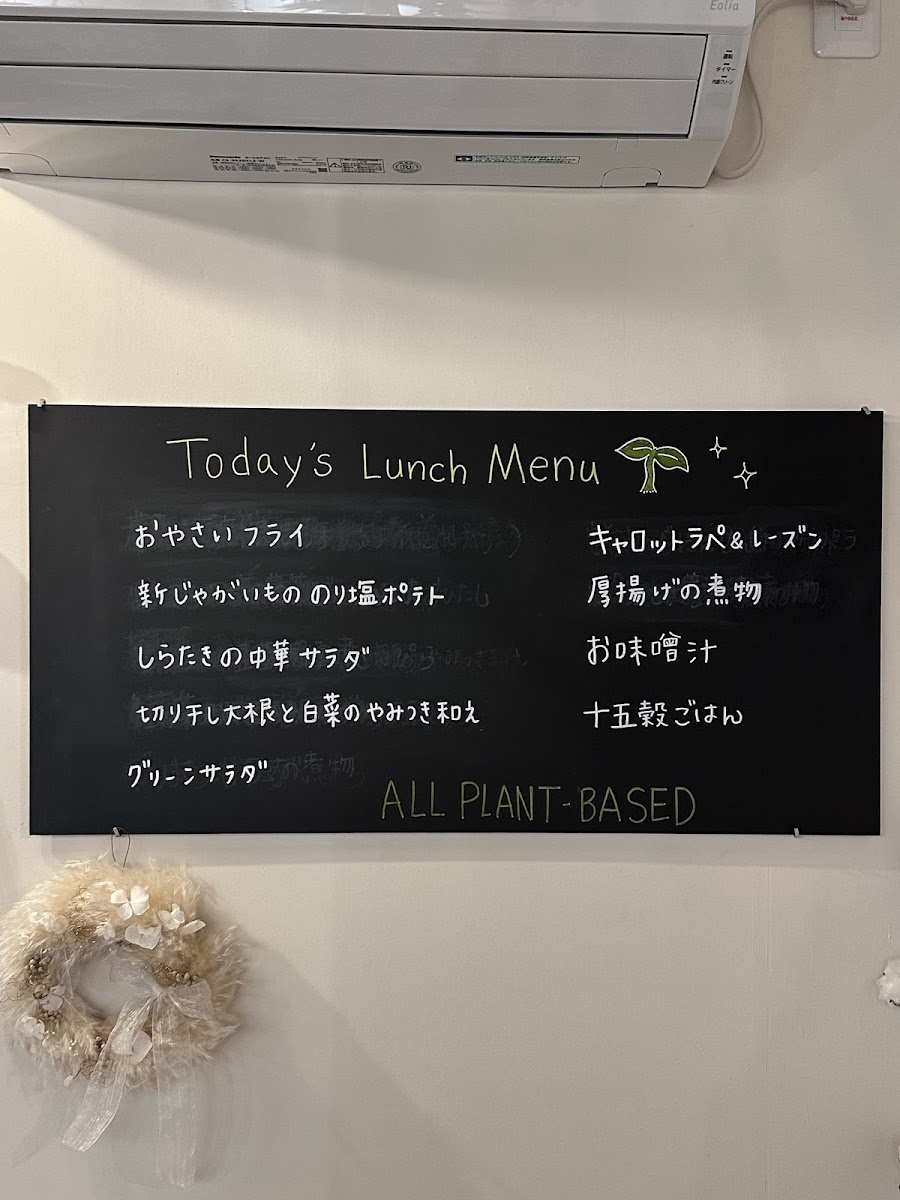 Eolia
運転
タイマー
内部クリーン
Today's Lunch Menu
おやさいフライ
新じゃがいもののり塩ポテト
しらたきの中華サラダ
切り干し大根と白菜のやみつき和え
グリーンサラダ
キャロットラペ&レーズン
厚揚げの煮物
お味噌汁
十五穀ごはん
ALL PLANT-BASED